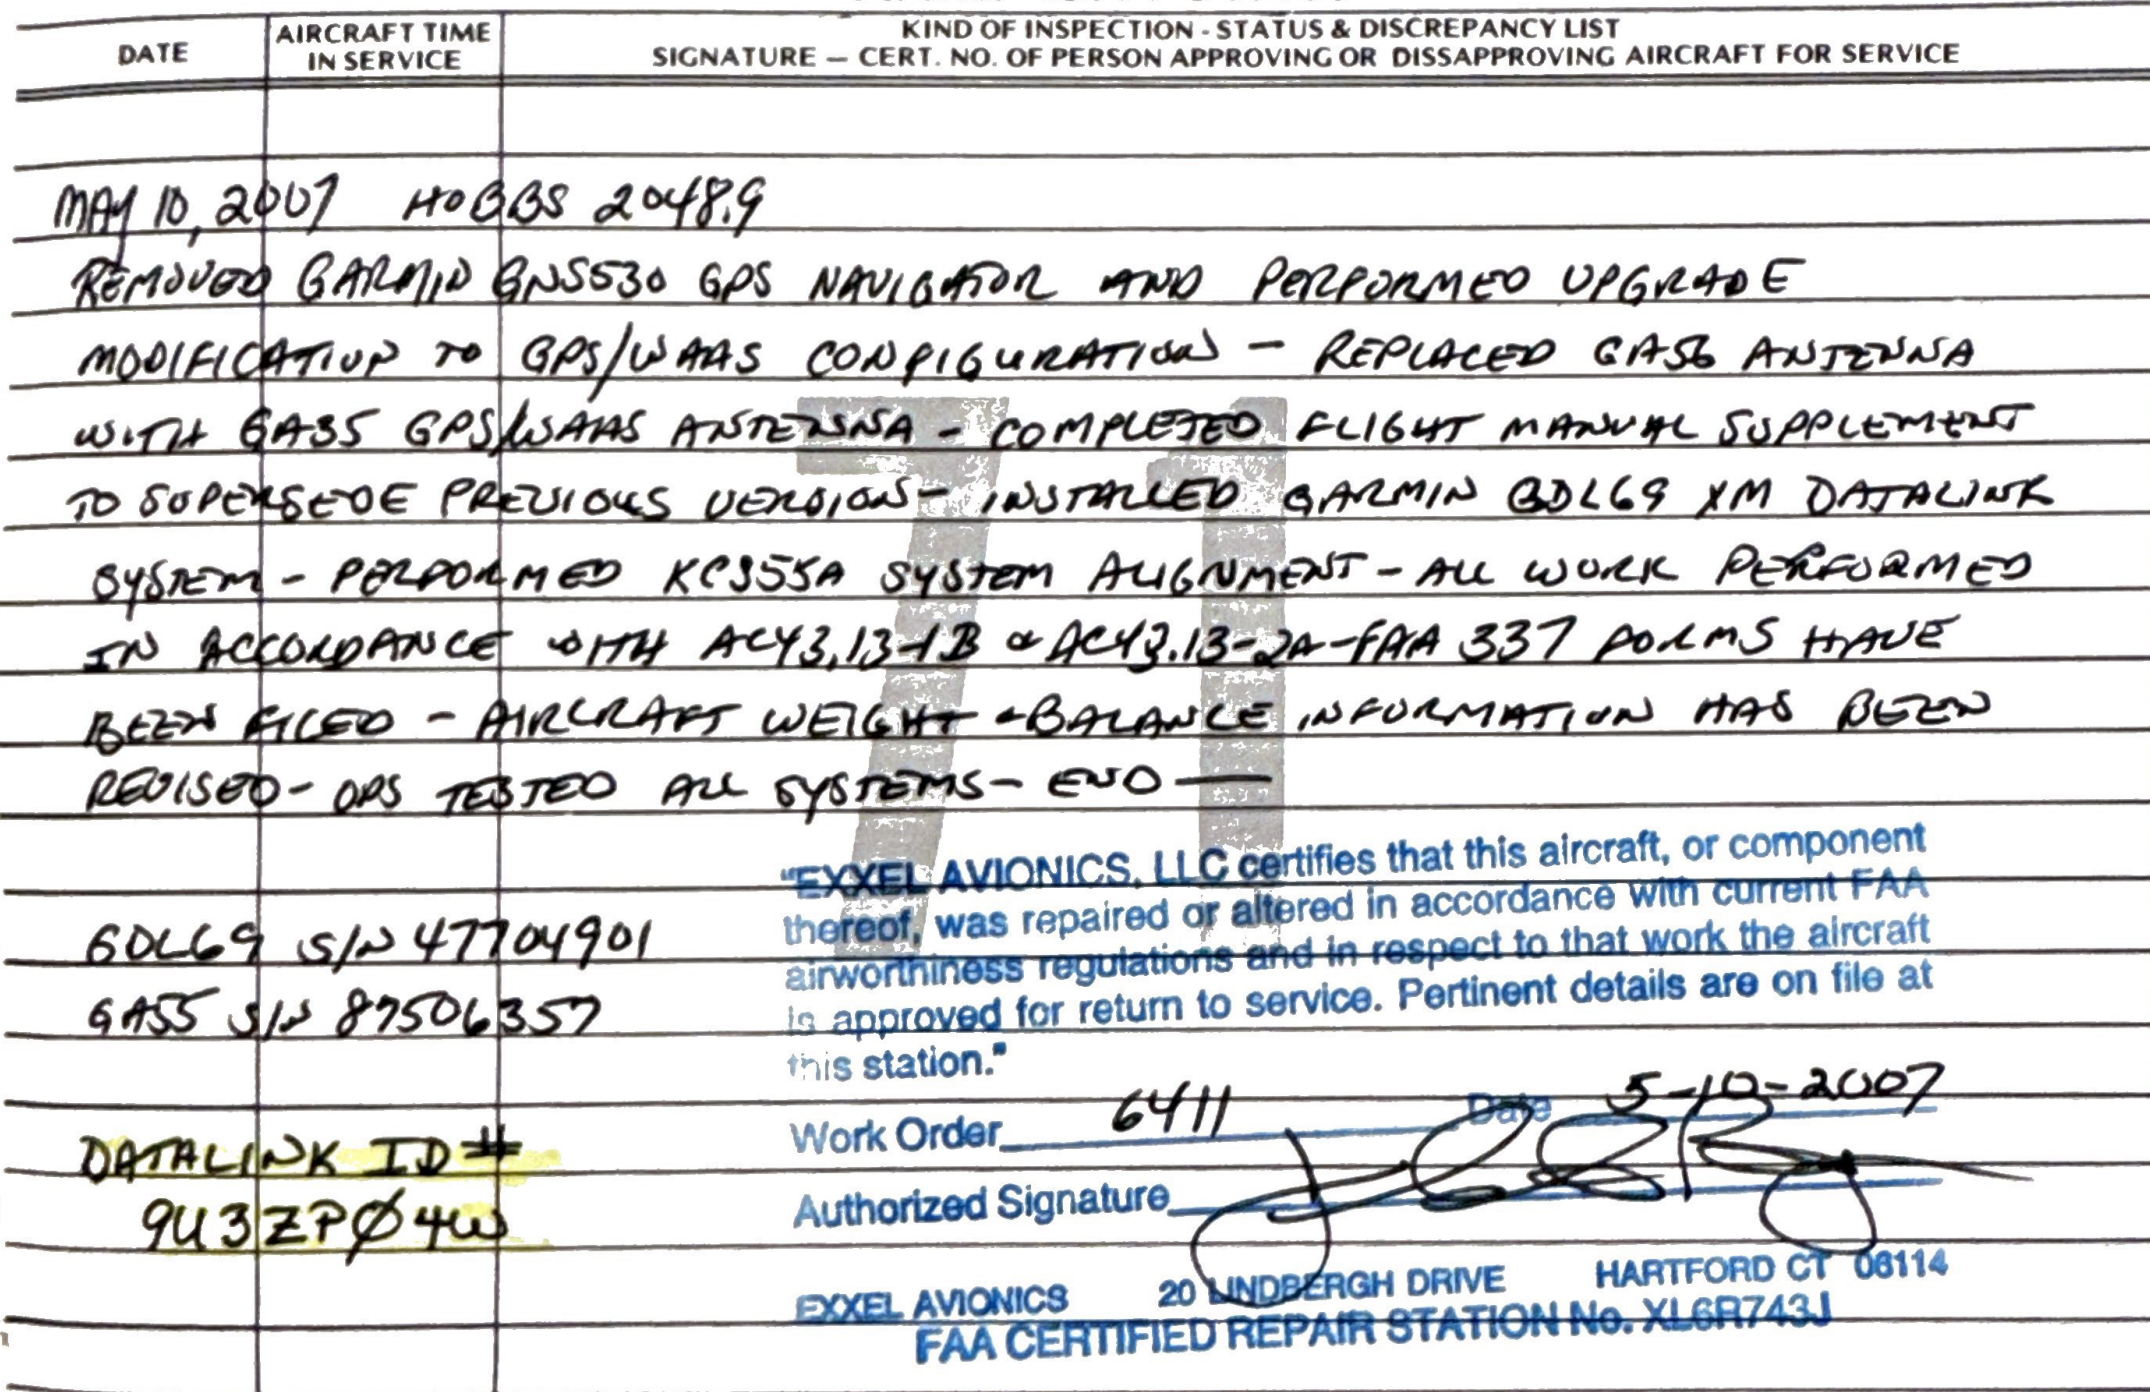 DATE
AIRCRAFT TIME
IN SERVICE
KIND OF INSPECTION - STATUS & DISCREPANCY LIST
SIGNATURE — CERT. NO. OF PERSON APPROVING OR DISSAPPROVING AIRCRAFT FOR SERVICE
MAY 10, 2007 HOBBS 2048.9
REMOVED GARMIN GNS530 GPS NAVIGATOR AND PERFORMED UPGRADE
MODIFICATION TO GPS/WAAS CONFIGURATION - REPLACED GA56 ANTENNA
WITH GA35 GPS/WAAS ANTENNA - COMPLETED FLIGHT MANUAL SUPPLEMENT
TO SUPERSEDE PREVIOUS VERSION - INSTALLED GARMIN GDL69 XM DATALINK
SYSTEM - PERFORMED KCS55A SYSTEM ALIGNMENT - ALL WORK PERFORMED
IN ACCORDANCE WITH AC43.13-1B & AC43.13-2A - FAA 337 FORMS HAVE
BEEN FILED - AIRCRAFT WEIGHT & BALANCE INFORMATION HAS BEEN
REVISED - OPS TESTED ALL SYSTEMS - END —
71
GDL69 S/N 47704901
GA55 S/N 87506357
DATALINK ID #
9U3ZPØ4W
"EXXEL AVIONICS, LLC certifies that this aircraft, or component
thereof, was repaired or altered in accordance with current FAA
airworthiness regulations and in respect to that work the aircraft
is approved for return to service. Pertinent details are on file at
this station."
Work Order 6411 Date 5-10-2007
Authorized Signature
EXXEL AVIONICS 20 LINDBERGH DRIVE HARTFORD CT 06114
FAA CERTIFIED REPAIR STATION No. XL6R743J